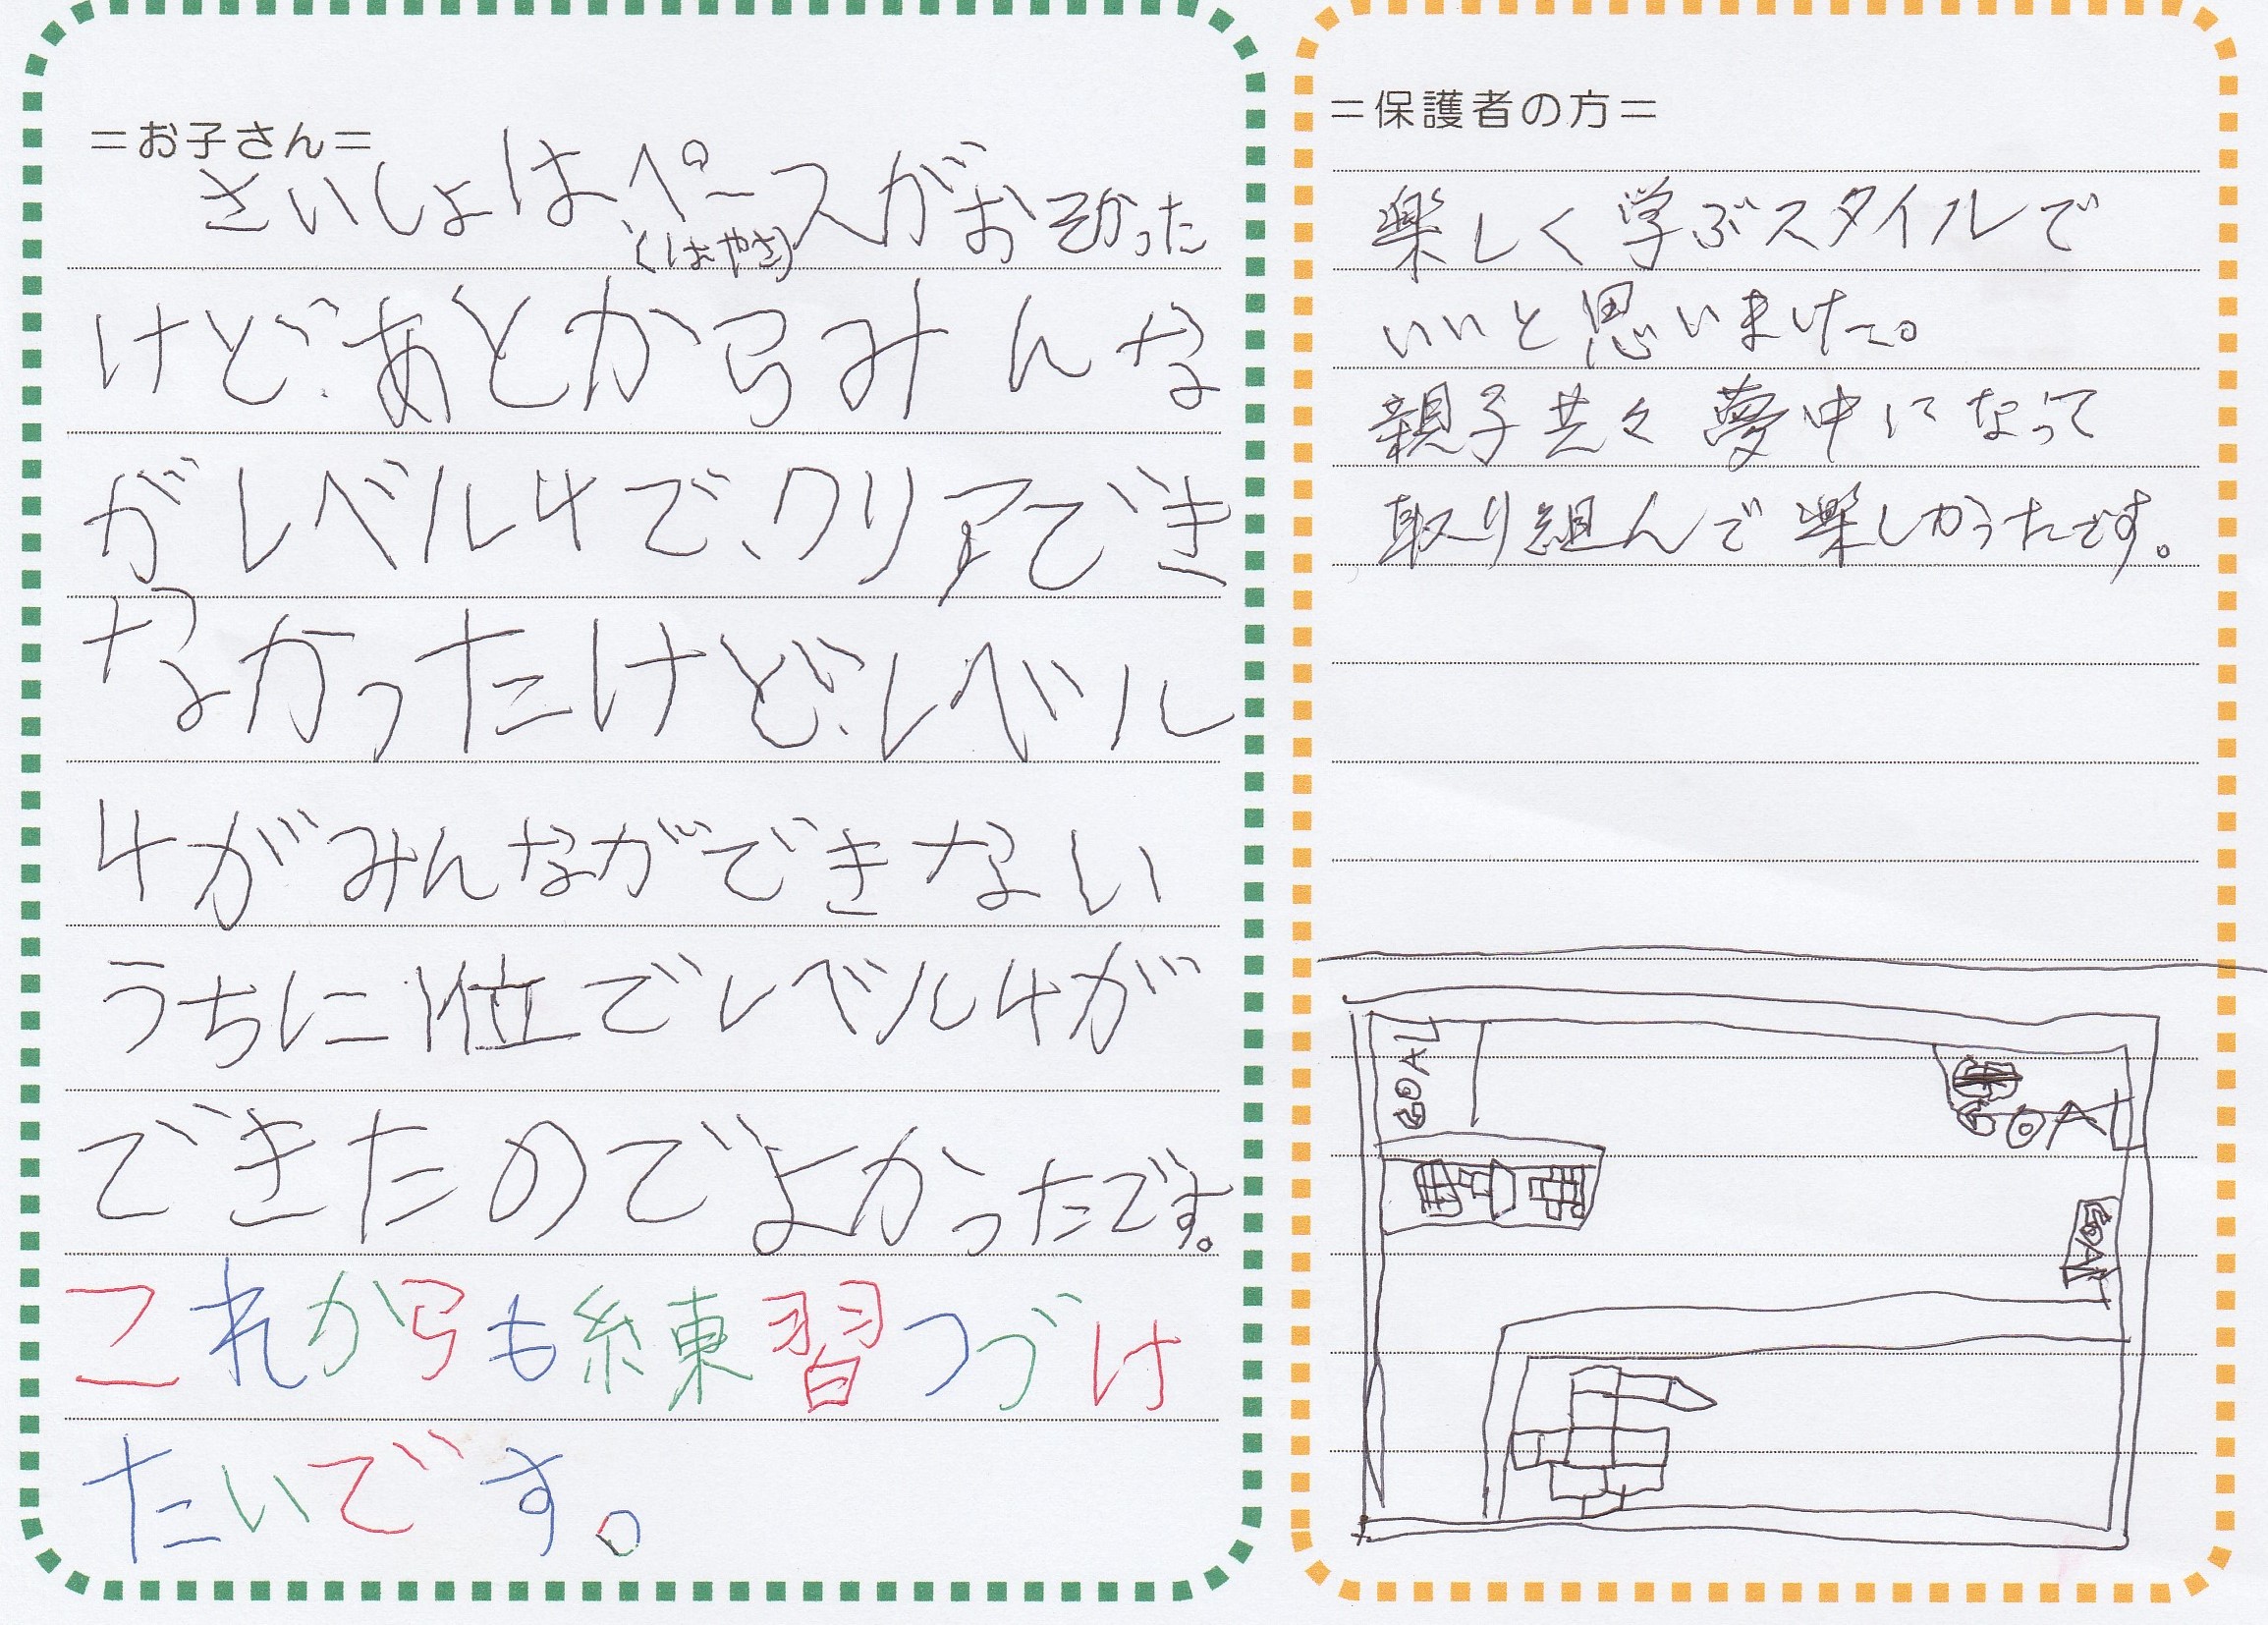 ＝お子さん＝
さいしょはペースがおそかった
(はやさ)
けど、あとからみんな
がレベル4で、クリアでき
なかったけど、レベル
4がみんなができない
うちに1位でレベル4が
できたのでよかったです。
これからも練習つづけ
たいです。
＝保護者の方＝
楽しく学ぶスタイルで
いいと思いました。
親子共々夢中になって
取り組んで楽しかったです。
GOAL
GOAL
GOAL